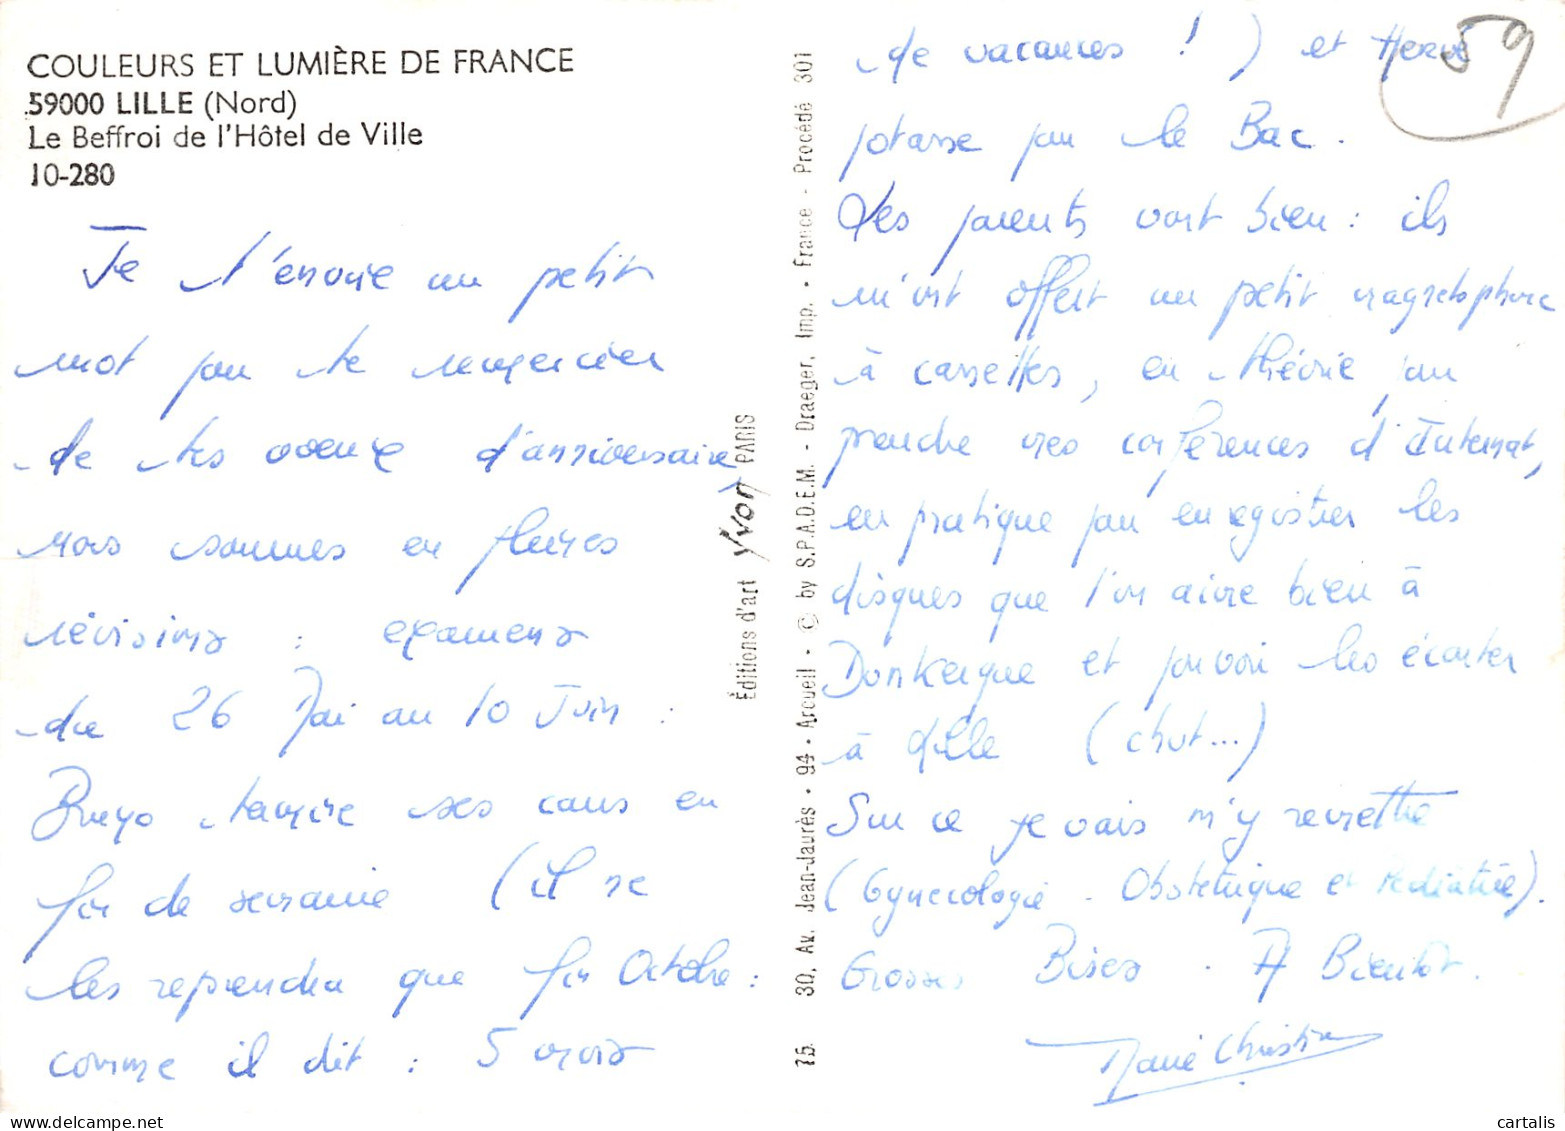 COULEURS ET LUMIÈRE DE FRANCE
59000 LILLE (Nord)
Le Beffroi de l'Hôtel de Ville
10-280
Je t'envoie un petit
mot pour te remercier
de tes voeux d'anniversaire,
nous sommes en pleines
révisions : examens
du 26 Mai au 10 Juin :
Bruno termine ses cours en
fin de semaine (il ne
les reprendra que fin Octobre :
comme il dit : 5 mois
Éditions d'art Yvon PARIS
15. 30, Av. Jean-Jaurès - 94 - Arcueil - © by S.P.A.D.E.M. - Draeger, Imp. - France - Procédé 301
59
de vacances ! ) et Hervé
potasse pour le Bac.
Les parents vont bien : ils
m'ont offert un petit magnétophone
à cassettes, en théorie pour
prendre mes conférences d'Internat,
en pratique pour enregistrer les
disques que l'on aime bien à
Dunkerque et pouvoir les écouter
à Lille (chut...)
Sur ce je vais m'y remettre
(Gynécologie - Obstétrique et Pédiatrie).
Grosses Bises. A Bientôt.
Marie Christine
cartalis